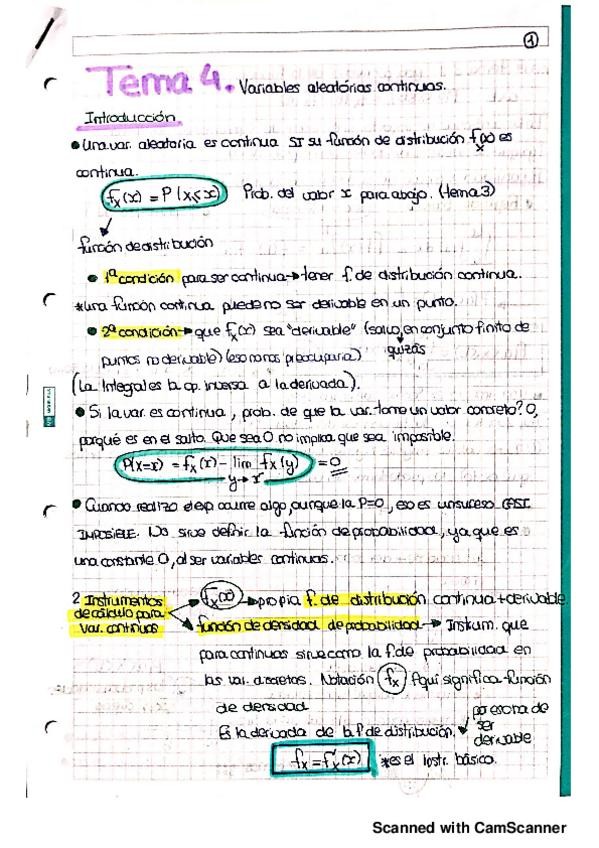 1
Tema 4. Variables aleatórias continuas.
Introducción
• Una var. aleatoria es continua SI su función de distribución fx(x) es
continua.
fx(x) = P(X≤x) Prob. del valor x para abajo. (tema 3)
función de distribución
• 1ª condición para ser continua → tener f. de distribución continua.
* una función continua puede no ser derivable en un punto.
• 2ª condición → que fx(x) sea "derivable" (salvo, en conjunto finito de
quizás
puntos no derivable) (eso no nos preocuparía)
(La Integral es la op. inversa a la derivada).
• Si la var. es continua, prob. de que la var. tome un valor concreto? 0,
porqué es en el salto. Que sea 0 no implica que sea imposible.
P(X=x) = fx(x) - lim fx(y) = 0
y→x⁻
• Cuando realizo el exp ocurre algo, aunque la P=0, eso es un suceso CASI
IMPOSIBLE. No sirve definir la función de probabilidad, ya que es
una constante 0, al ser variables continuas.
2 Instrumentos
de cálculo para
var. continuas
fx(x) → propia f. de distribución continua + derivable
función de densidad de probabilidad → Instrum. que
para continuas sirve como la f. de probabilidad en
las var. discretas. Notación fx Aquí significa función
de densidad
Es la derivada de la f. de distribución.
por eso ha de
ser
derivable
fx = f'x(x) * es el instr. básico.
Scanned with CamScanner